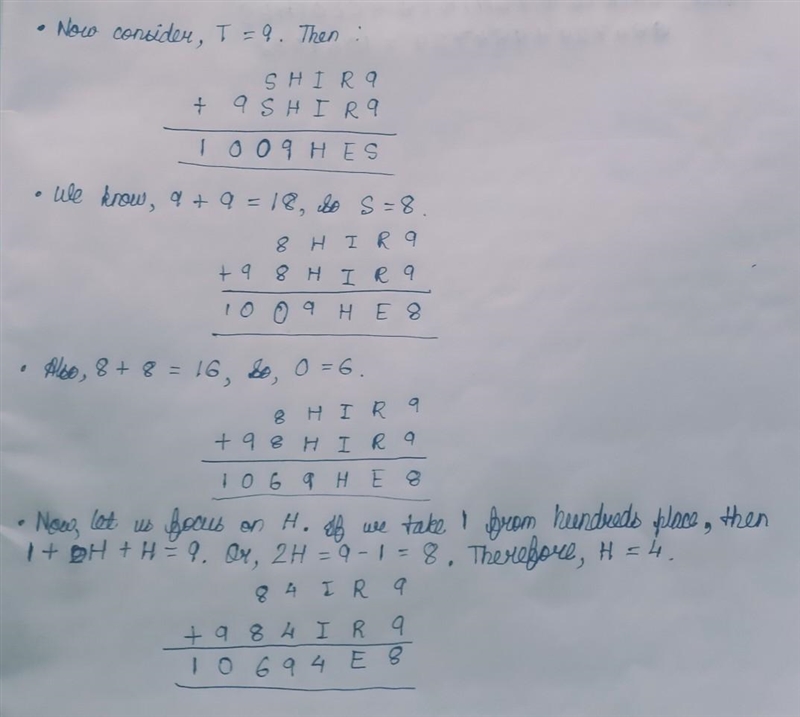 • Now consider, T = 9. Then :
S H I R 9
+ 9 S H I R 9
1 0 0 9 H E S
• We know, 9 + 9 = 18, so S = 8.
8 H I R 9
+ 9 8 H I R 9
1 0 0 9 H E 8
• Also, 8 + 8 = 16, So, O = 6.
8 H I R 9
+ 9 8 H I R 9
1 0 6 9 H E 8
• Now, let us focus on H. If we take 1 from hundreds place, then
1 + H + H = 9. Or, 2H = 9 - 1 = 8. Therefore, H = 4.
8 4 I R 9
+ 9 8 4 I R 9
1 0 6 9 4 E 8